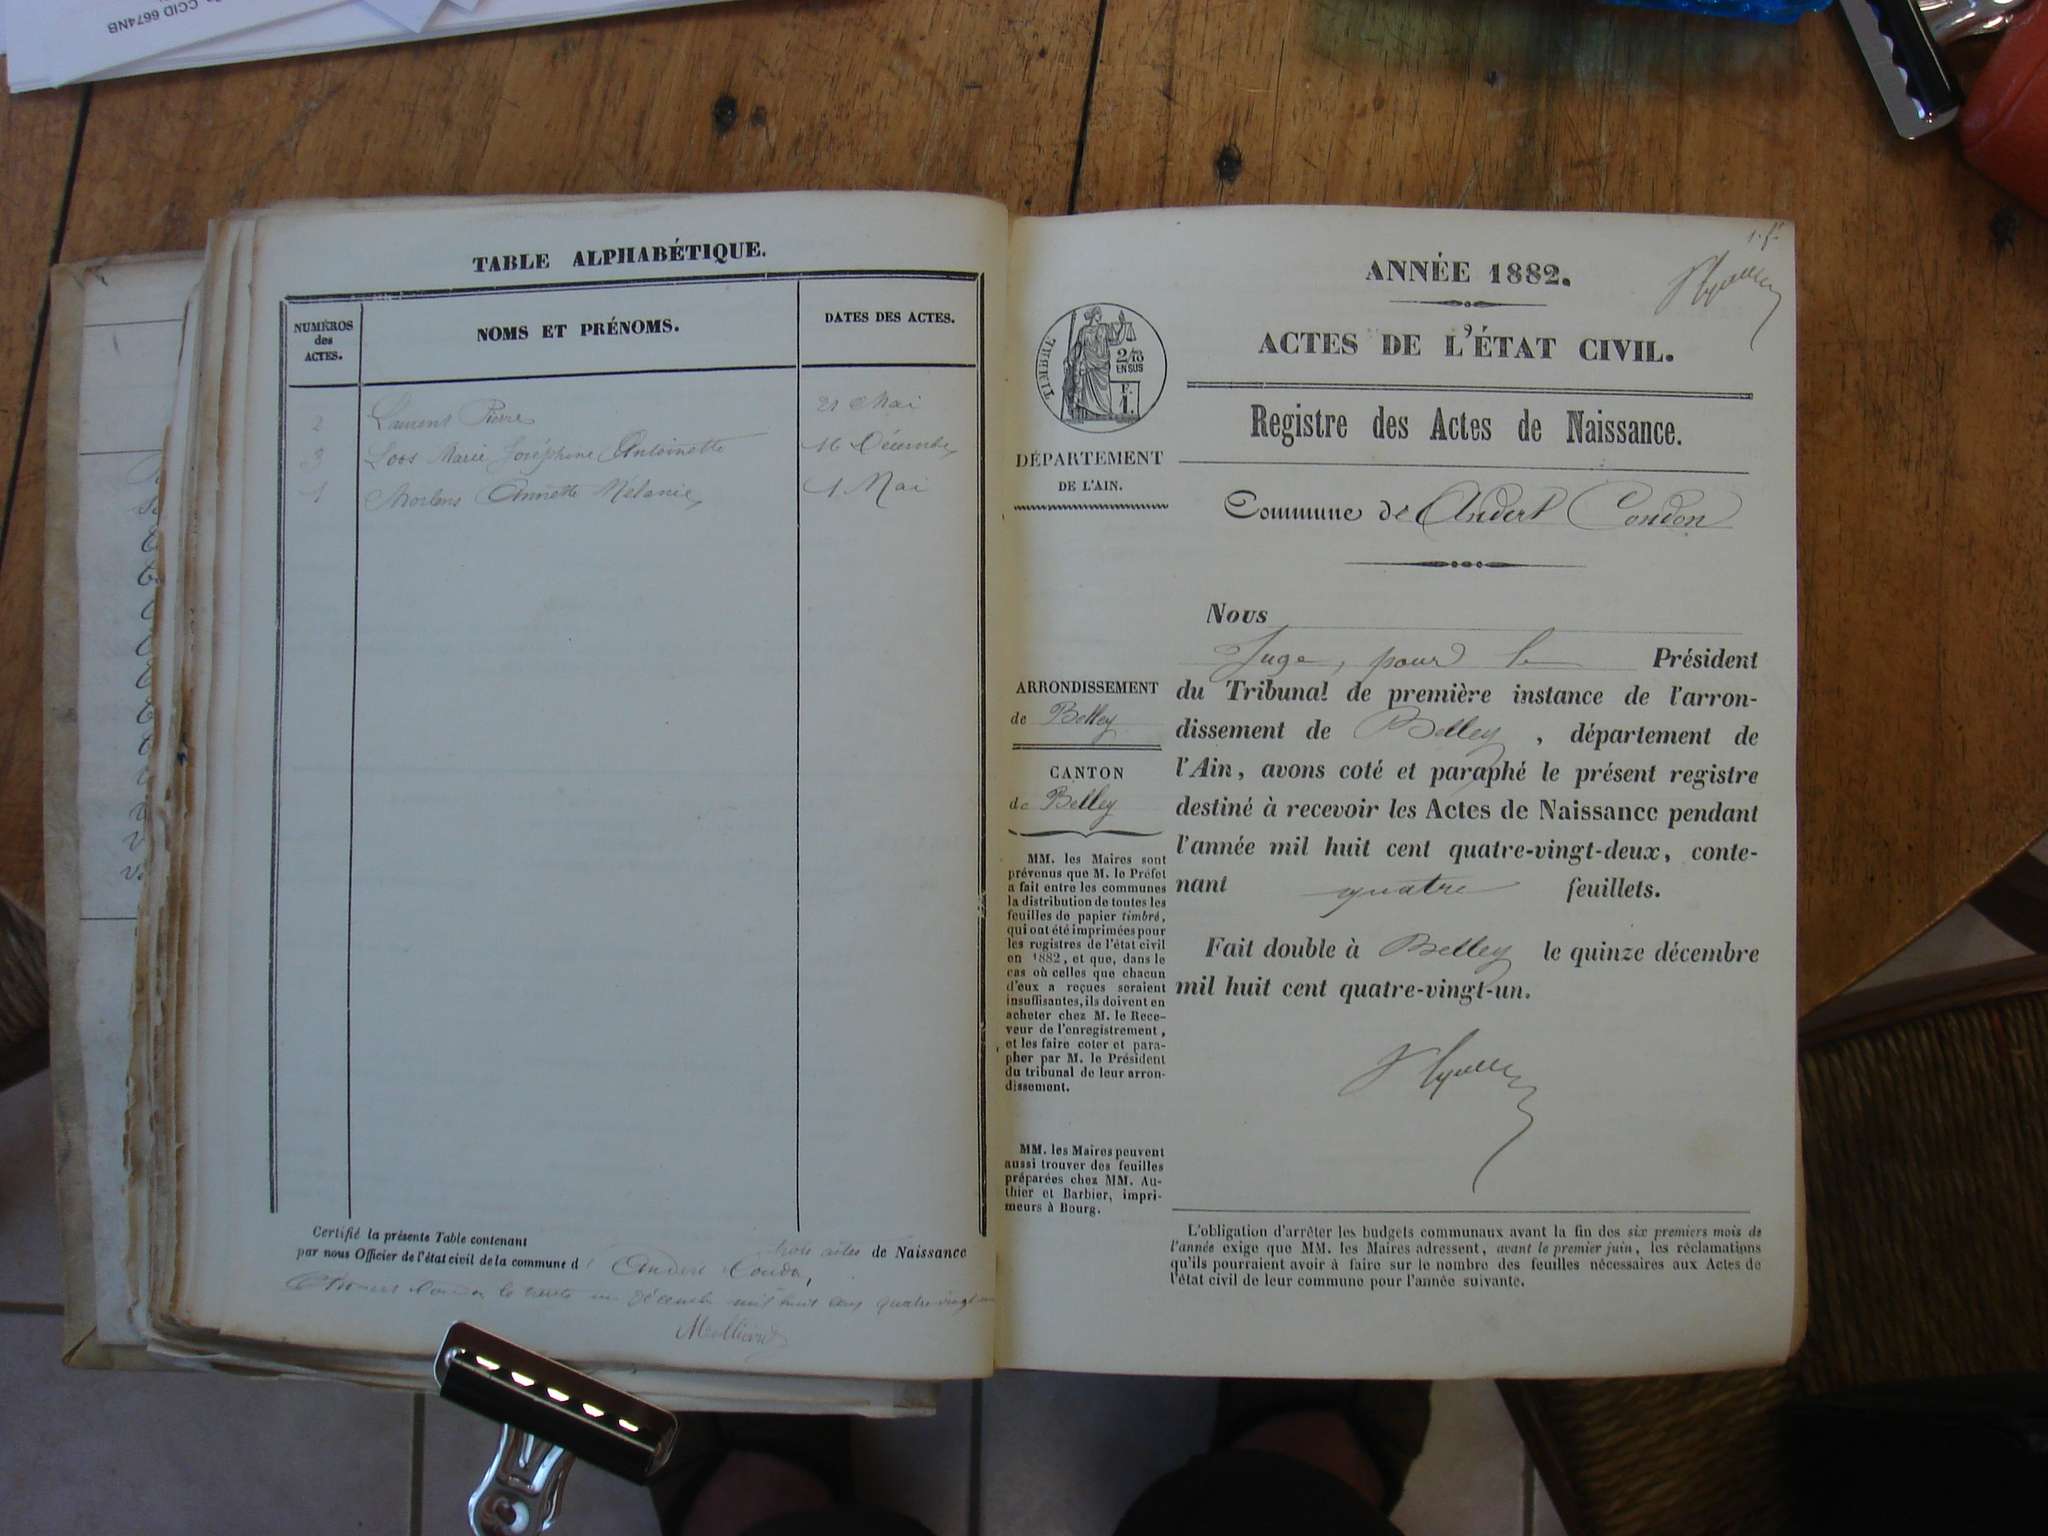 CCID 6674NB
TABLE ALPHABÉTIQUE.
NUMÉROS
des
ACTES.
NOMS ET PRÉNOMS.
DATES DES ACTES.
2 Laurent Pierre 21 Mai
3 Loos Marie Joséphine Antoinette 16 Décembre
1 Morlens Annette Mélanie 1 Mai
Certifié la présente Table contenant trois actes de Naissance
par nous Officier de l'état civil de la commune d' Andert Condon,
Condon le trente un décembre mil huit cent quatre-vingt un
ANNÉE 1882.
ACTES DE L'ÉTAT CIVIL.
TIMBRE
2/10
EN SUS
F.
1.
Registre des Actes de Naissance.
DÉPARTEMENT
DE L'AIN.
Commune de Andert Condon
Nous
Juge, pour le Président
du Tribunal de première instance de l'arron-
dissement de Belley, département de
l'Ain, avons coté et paraphé le présent registre
destiné à recevoir les Actes de Naissance pendant
l'année mil huit cent quatre-vingt-deux, conte-
nant quatre feuillets.
Fait double à Belley le quinze décembre
mil huit cent quatre-vingt-un.
ARRONDISSEMENT
de Belley
CANTON
de Belley
MM. les Maires sont
prévenus que M. le Préfet
a fait entre les communes
la distribution de toutes les
feuilles de papier timbré,
qui ont été imprimées pour
les registres de l'état civil
en 1882, et que, dans le
cas où celles que chacun
d'eux a reçues seraient
insuffisantes, ils doivent en
acheter chez M. le Rece-
veur de l'enregistrement,
et les faire coter et para-
pher par M. le Président
du tribunal de leur arron-
dissement.
MM. les Maires peuvent
aussi trouver des feuilles
préparées chez MM. Au-
thier et Barbier, impri-
meurs à Bourg.
L'obligation d'arrêter les budgets communaux avant la fin des six premiers mois de
l'année exige que MM. les Maires adressent, avant le premier juin, les réclamations
qu'ils pourraient avoir à faire sur le nombre des feuilles nécessaires aux Actes de
l'état civil de leur commune pour l'année suivante.